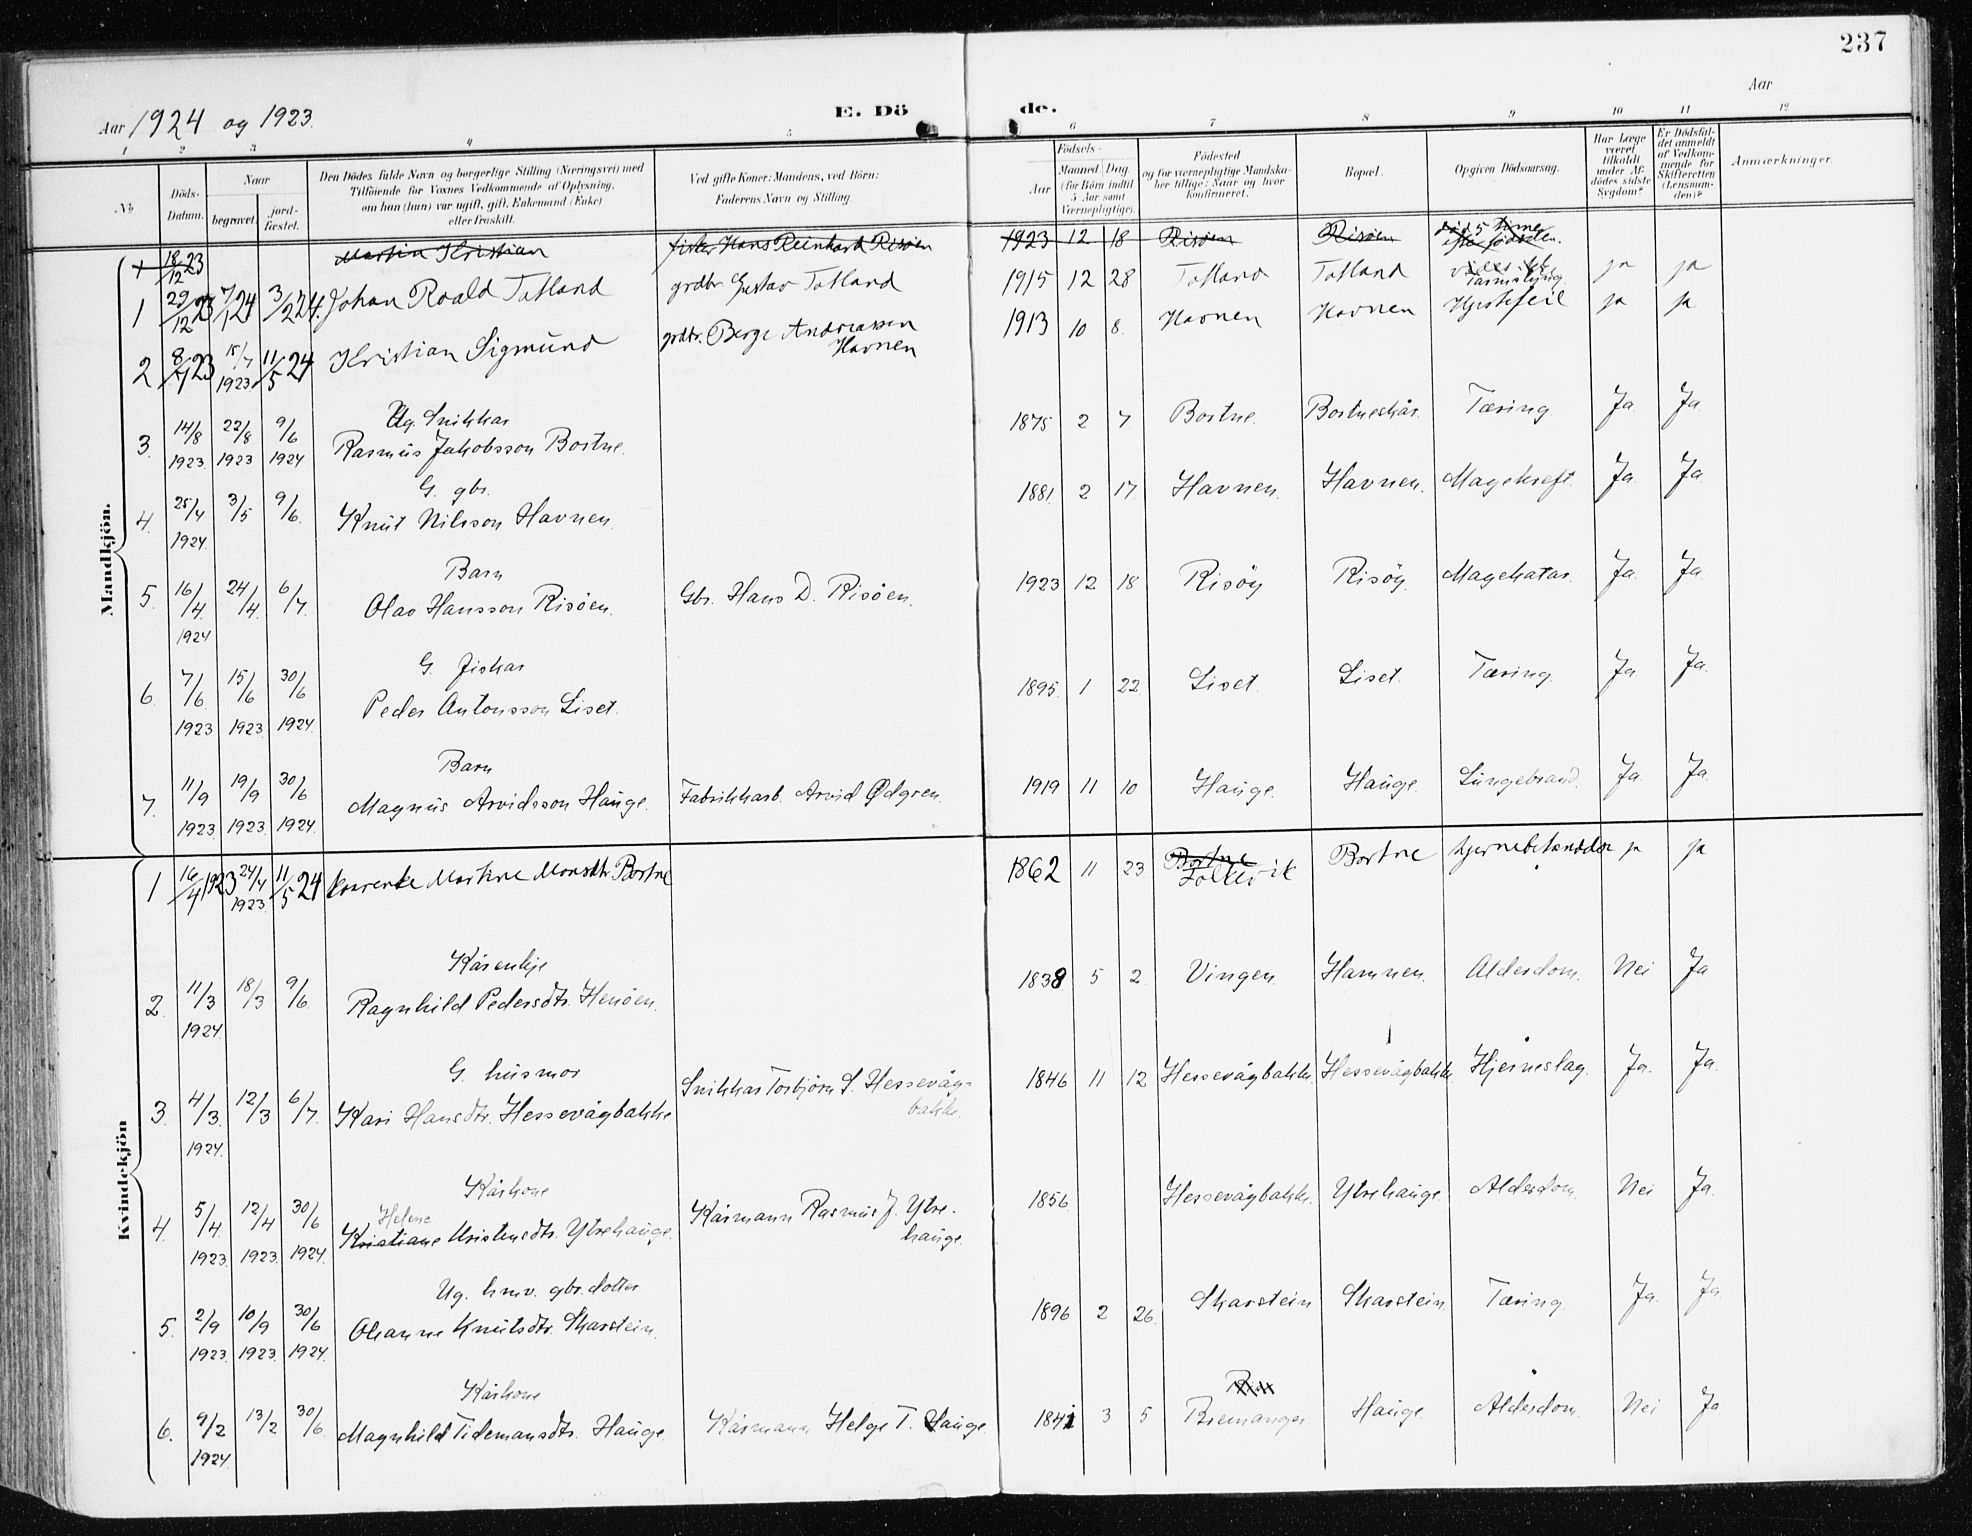 237
Aar 1924 og 1923. E. Dö de. Aar
1 2 3 4 5 6 7 8 9 10 11 12
No. Döds-Datum. Naar begravet. jord-fæstet. Den Dödes fulde Navn og borgerlige Stilling (Næringsvei) med Tilföiende for Voxnes Vedkommende af Oplysning, om han (hun) var ugift, gift, Enkemand (Enke) eller fraskilt. Ved gifte Koner: Mandens, ved Börn: Faderens Navn og Stilling. Födsels- Aar Maaned. Dag. (for Börn indtil 5 Aar samt Værnepligtige). Födested og for værnepligtige Mandska-ber tillige: Naar og hvor konfirmeret. Bopæl. Opgiven Dödsaarsag. Har Læge været tilkaldt under Af-dödes sidste Sygdom? Er Dödsfal-det anmeldt af Vedkom-mende for Skifteretten (Lensman-den)? Anmærkninger.
Mandkjön.
1 18/12 23 Martin Kristian fisker Hans Reinhard Risöen 1923 12 18 Risöen Risöen död 5 timer efter födselen.
1 29/12 23 7/1 24 3/2 24. Johan Roald Totland grdbr Gustav Totland 1915 12 28 Totland Totland Tarmslyng ja ja
2 8/7 23 15/7 1923 11/5 24 Kristian Sigmund grdbr. Berge Andreassen Havnen 1913 10 8. Havnen Havnen Hjertefeil ja ja
3. 14/8 1923. 22/8 1923 9/6 1924 Ug. Snikkar
Rasmus Jakobsson Bortne. 1875 2 7 Bortne. Bortneskår. Tæring. Ja. Ja.
4. 25/4 1924. 3/5 9/6. G. gbr.
Knut Nilsson Havnen. 1881 2 17 Havnen. Havnen. Magekreft. Ja. Ja.
5. 16/4. 1924 24/4. 6/7. Barn
Olav Hansson Risöen. Gbr. Hans D. Risöen. 1923 12 18 Risöy Risöy. Magekatar. Ja. Ja.
6. 7/6 1923 15/6 1923. 30/6 1924. G. Fiskar
Peder Antonsson Liset. 1895. 1 22. Liset. Liset. Tæring. Ja. Ja.
7. 11/9 1923. 19/9 1923. 30/6 1924. Barn
Magnus Arvidsson Hauge. Fabrikkarb. Arvid Ødgren. 1919 11 10 Hauge. Hauge. Lungebrand. Ja. Ja.
Kvindekjön
1 16/4 1923 24/4 1923. 11/5 24 Laurentse Martine Monsdtr Bortne 1862 11 23 Bortne Folkevik Bortne hjernebetændelse ja ja
2. 11/3 1924. 18/3 9/6. Kårenkje
Ragnhild Pedersdtr. Henöen. 1838 5 2. Vingen. Hamnen. Alderdom. Nei Ja.
3. 4/3. 1924. 12/3 6/7. G. husmor
Kari Hansdtr. Hessevågbakke Snikkar Torbjörn S. Hessevåg-
bakke. 1846 11 12 Hessevågbakke. Hessevågbakke. Hjerneslag. Ja. Ja.
4. 5/4. 1923. 12/4 1923. 30/6 1924. Kårkone
Helene
Kristiane Kristensdtr. Ytrehauge. Kårmann Rasmus J. Ytre-
hauge. 1856. Hessevågbakke. Ytrehauge. Alderdom. Nei Ja.
5. 2/9 1923. 10/9 1923. 30/6 1924. Ug. hmv. gbr.dotter
Oleanne Knutsdtr. Skarstein. 1896 2 26. Skarstein Skarstein. Tæring. Ja. Ja.
6. 9/2 1924. 13/2 30/6. Kårkone
Magnhild Tidemansdtr. Hauge. Kårmann Helge T. Hauge. 1841 3 5 Bremanger Hauge. Alderdom. Nei Ja